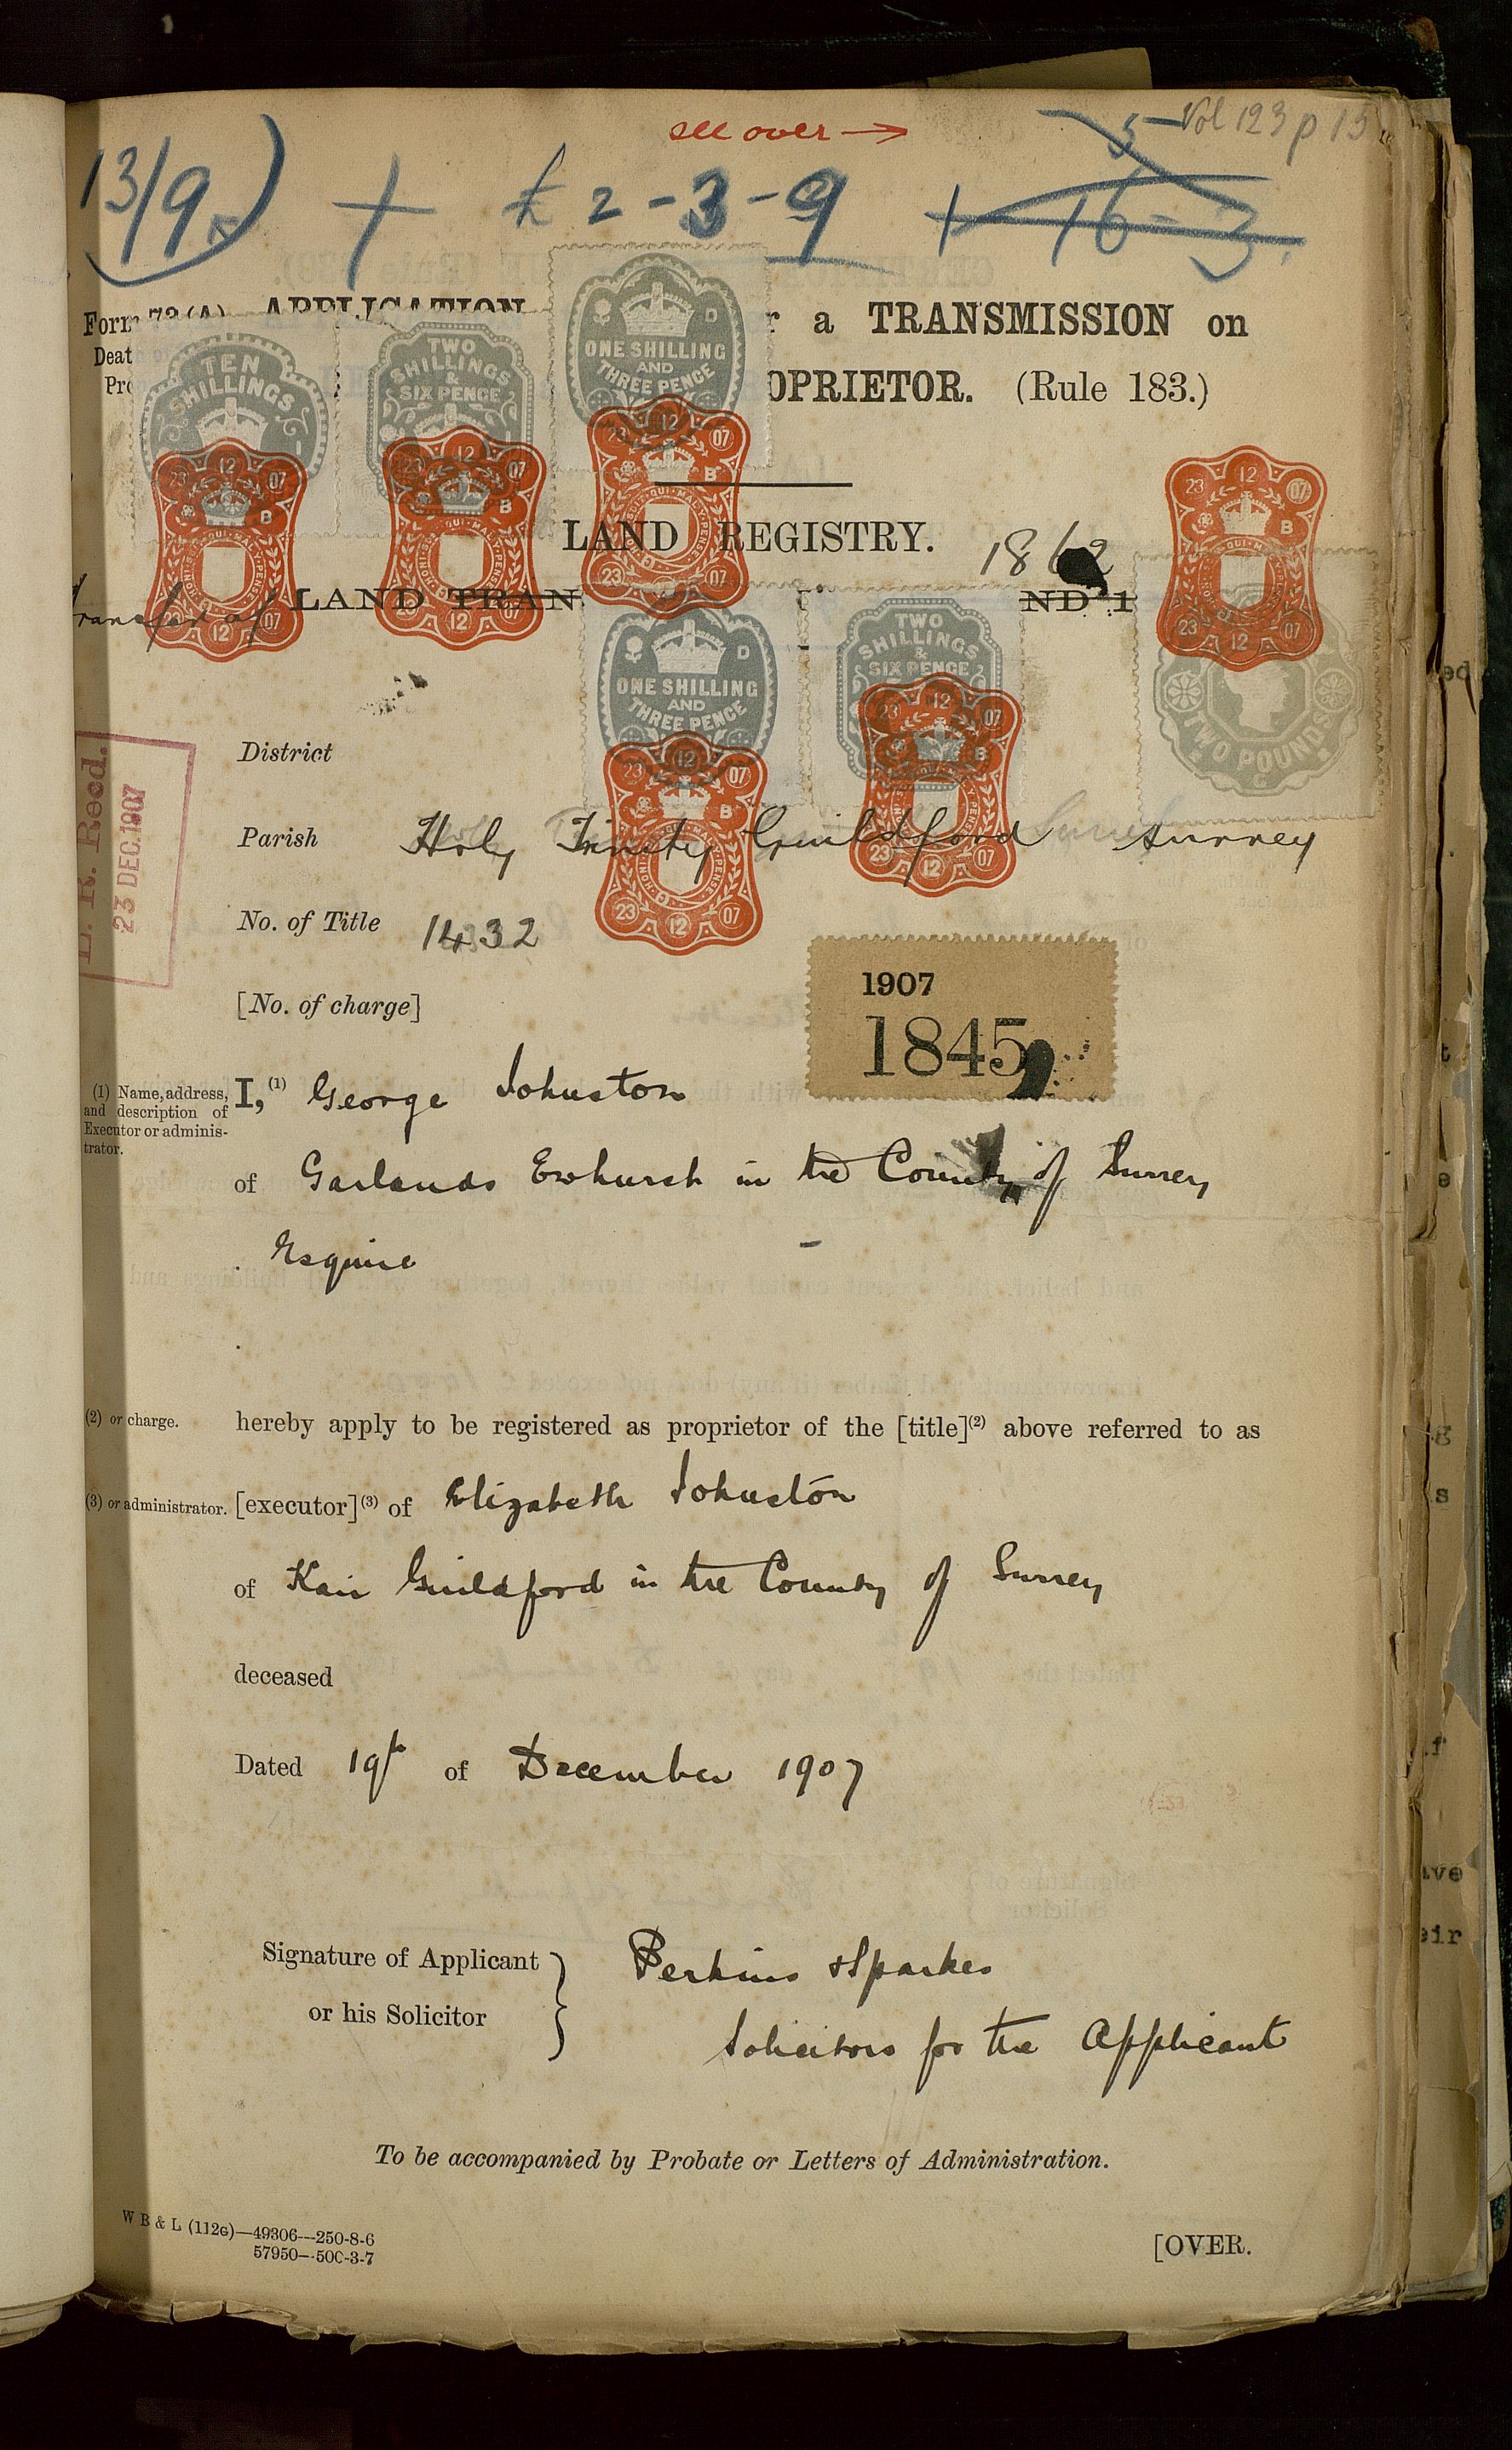 see over →
5 Vol 123 p 15
13/9 + £2-3-9 + 16-3
Form 73 (A). APPLICATION r a TRANSMISSION on
Deat
Pro OPRIETOR. (Rule 183.)
TEN SHILLINGS
TWO SHILLINGS & SIX PENCE
ONE SHILLING AND THREE PENCE
LAND REGISTRY.
1862
Transfer of LAND TRAN ND 1
ONE SHILLING AND THREE PENCE
TWO SHILLINGS & SIX PENCE
TWO POUNDS
23 12 07 B
HONI SOIT QUI MAL Y PENSE
L. R. Recd.
23 DEC. 1907
District
Parish Holy Trinity Guildford Surrey
No. of Title 1432
[No. of charge]
1907
1845
(1) Name, address, and description of Executor or administrator.
I,(1) George Johnston
of Garlands Ewhurst in the County of Surrey
Esquire
(2) or charge.
hereby apply to be registered as proprietor of the [title](2) above referred to as
(3) or administrator.
[executor](3) of Elizabeth Johnston
of Kair Guildford in the County of Surrey
deceased
Dated 19th of December 1907
Signature of Applicant
or his Solicitor
Perkins & Sparkes
Solicitors for the Applicant
To be accompanied by Probate or Letters of Administration.
W B & L (112G)—49306—250-8-6
57950—500-3-7
[OVER.